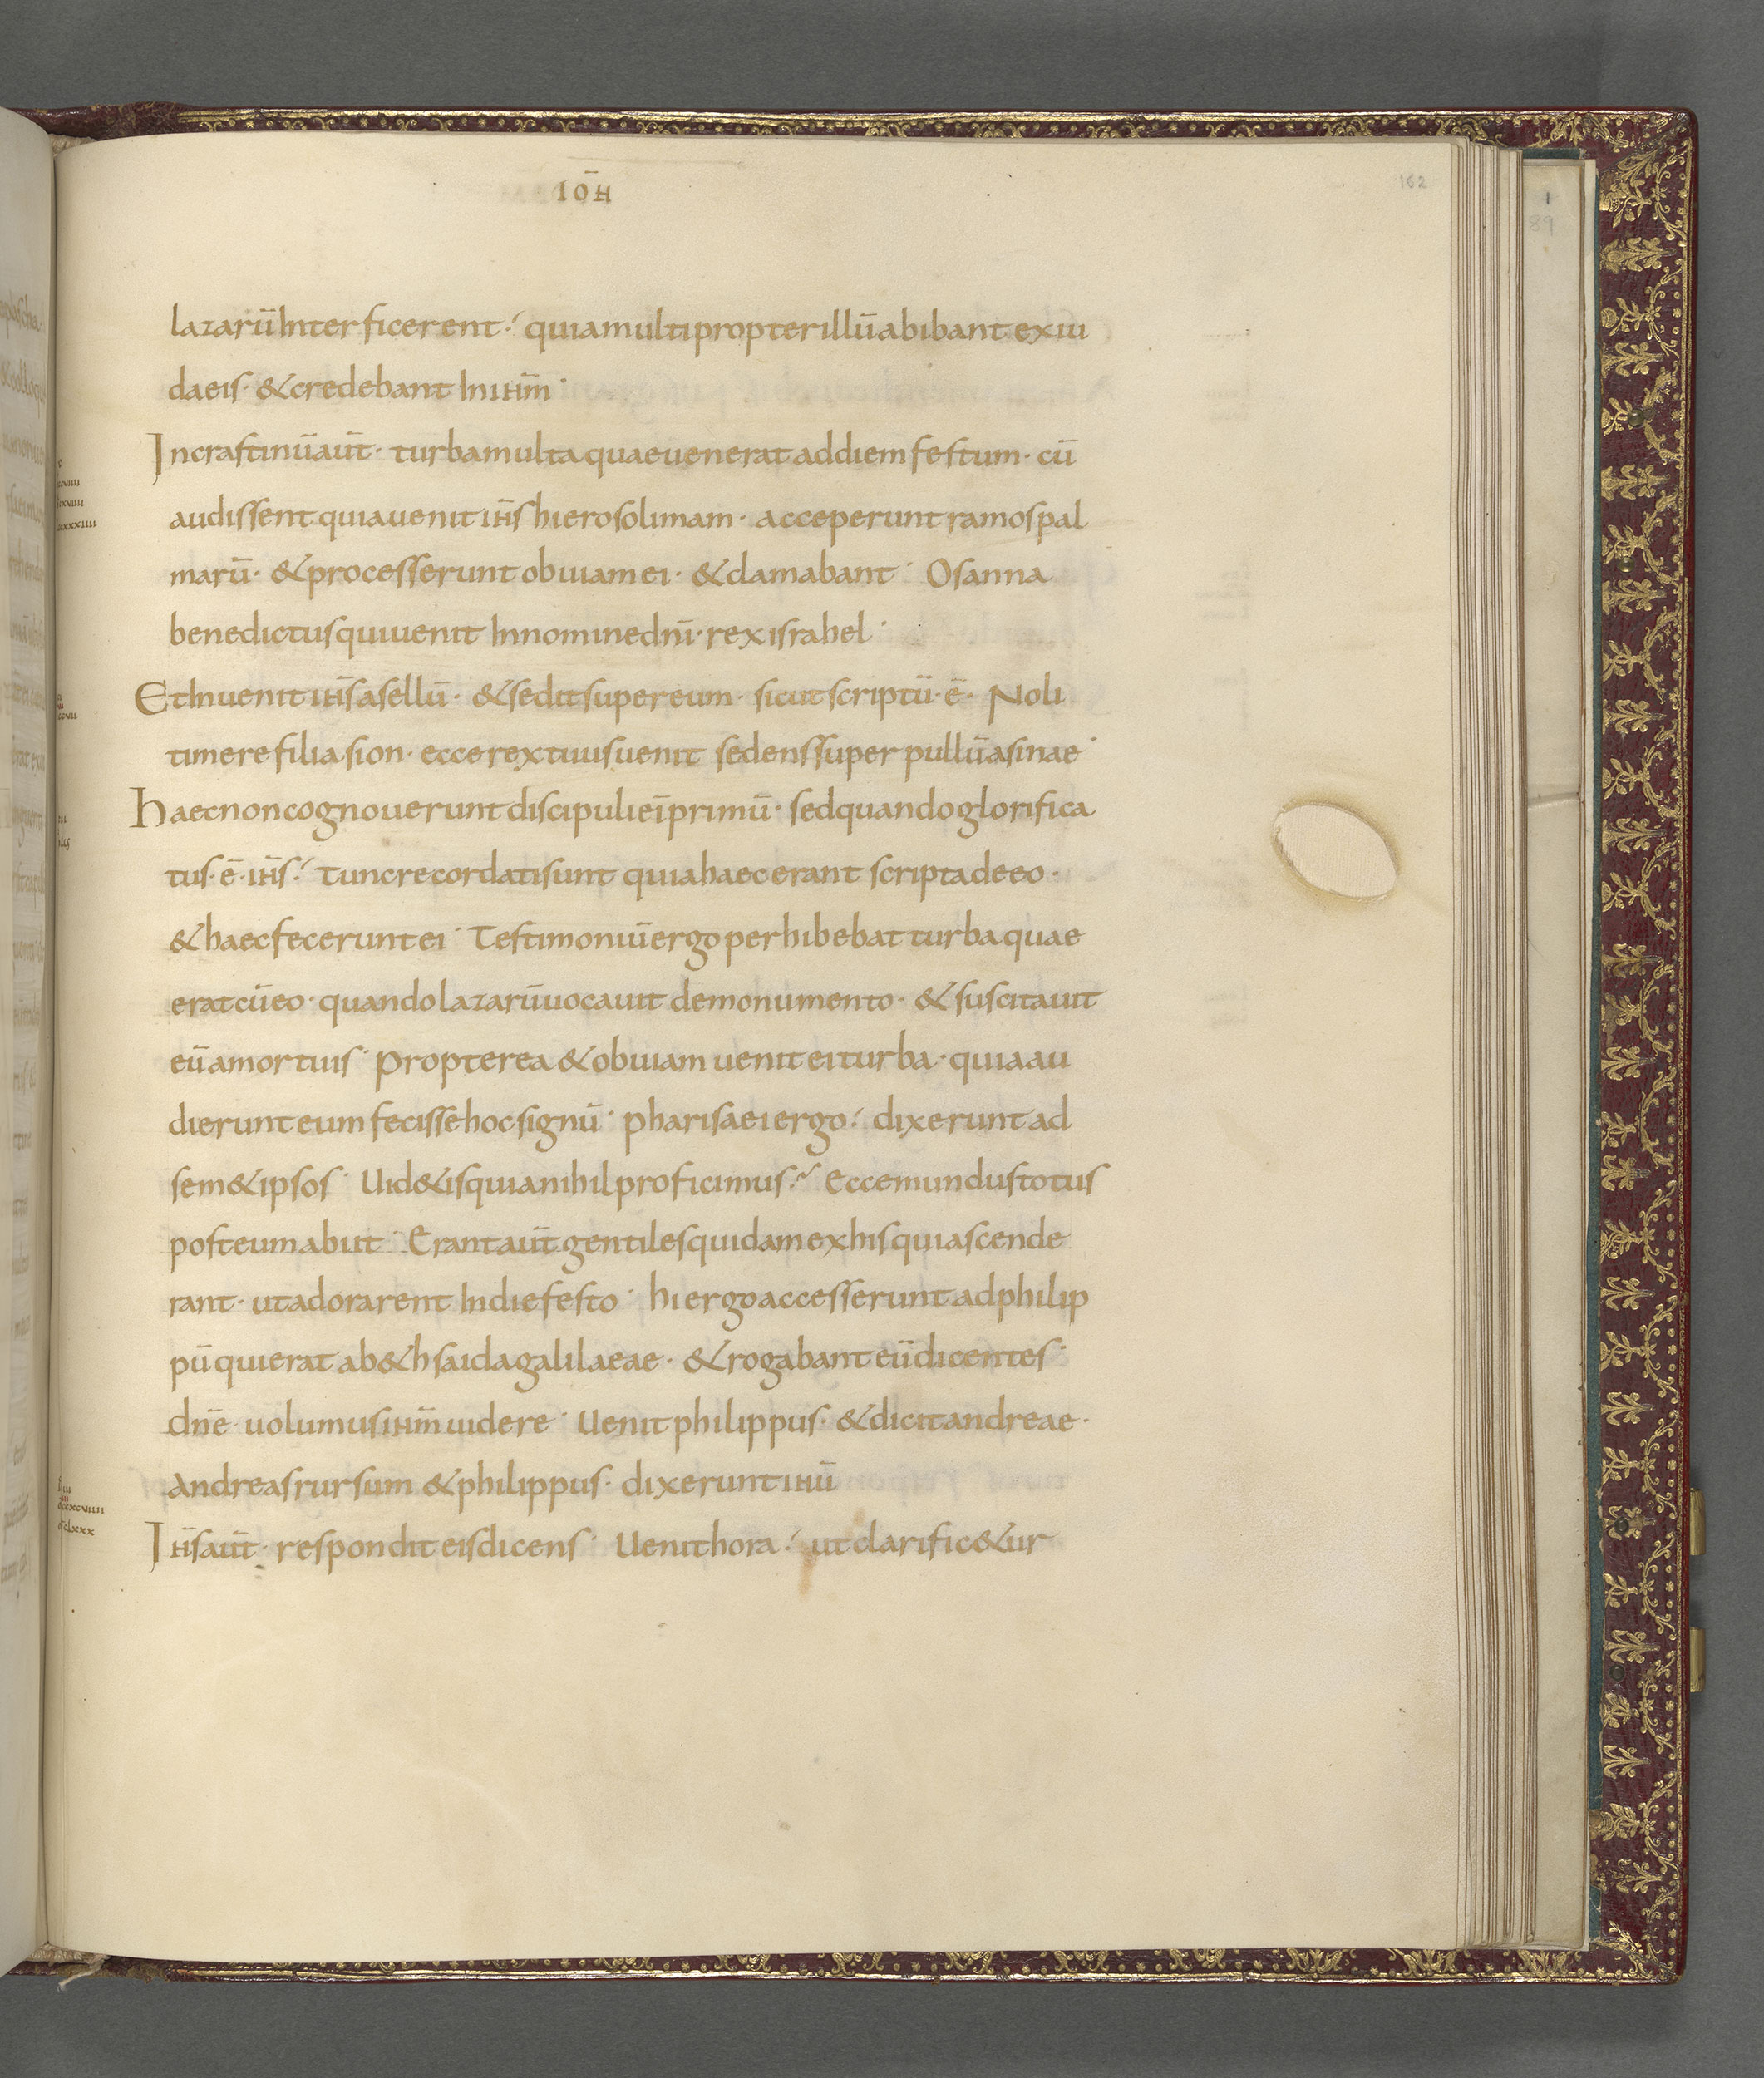 IOH̄
162
1
89
lazarū Interficerent · quia multi propter illū abibant ex iu
daeis · & credebant In ihm̄ ·
In crastinū aut̄ · turba multa quae venerat ad diem festum · cū
audissent quia uenit ih̄s hierosolimam · acceperunt ramos pal
marū · & processerunt obuiam ei · & clamabant · Osanna
benedictus qui uenit In nomine dnī · rex israhel ·
Et Inuenit ih̄s asellū · & sedit super eum · sicut scriptū · ē · Noli
timere filia sion · ecce rex tuus uenit sedens super pullū asinae ·
Haec non cognouerunt discipuli ei primū · sed quando glorifica
tus · ē · ih̄s · tunc recordati sunt quia haec erant scripta de eo ·
& haec fecerunt ei · Testimoniū ergo perhibebat turba quae
erat cū eo · quando lazarū uocauit de monumento · & suscitauit
eū a mortuis · propterea & obuiam uenit ei turba · quia au
dierunt eum fecisse hoc signū · pharisaei ergo · dixerunt ad
sem&ipsos · Uid&is quia nihil proficimus · Ecce mundus totus
post eum abiit · Erant aut̄ gentiles quidam ex his qui ascende
rant · ut adorarent In die festo · hi ergo accesserunt ad philip
pū qui erat a b&hsaida galilaeae · & rogabant eū dicentes ·
dnē uolumus ihm̄ uidere · Uenit philippus · & dicit andreae ·
Andreas rursum & philippus · dixerunt ihū
Ih̄s aut̄ · respondit eis dicens · Uenit hora · ut clarific&ur